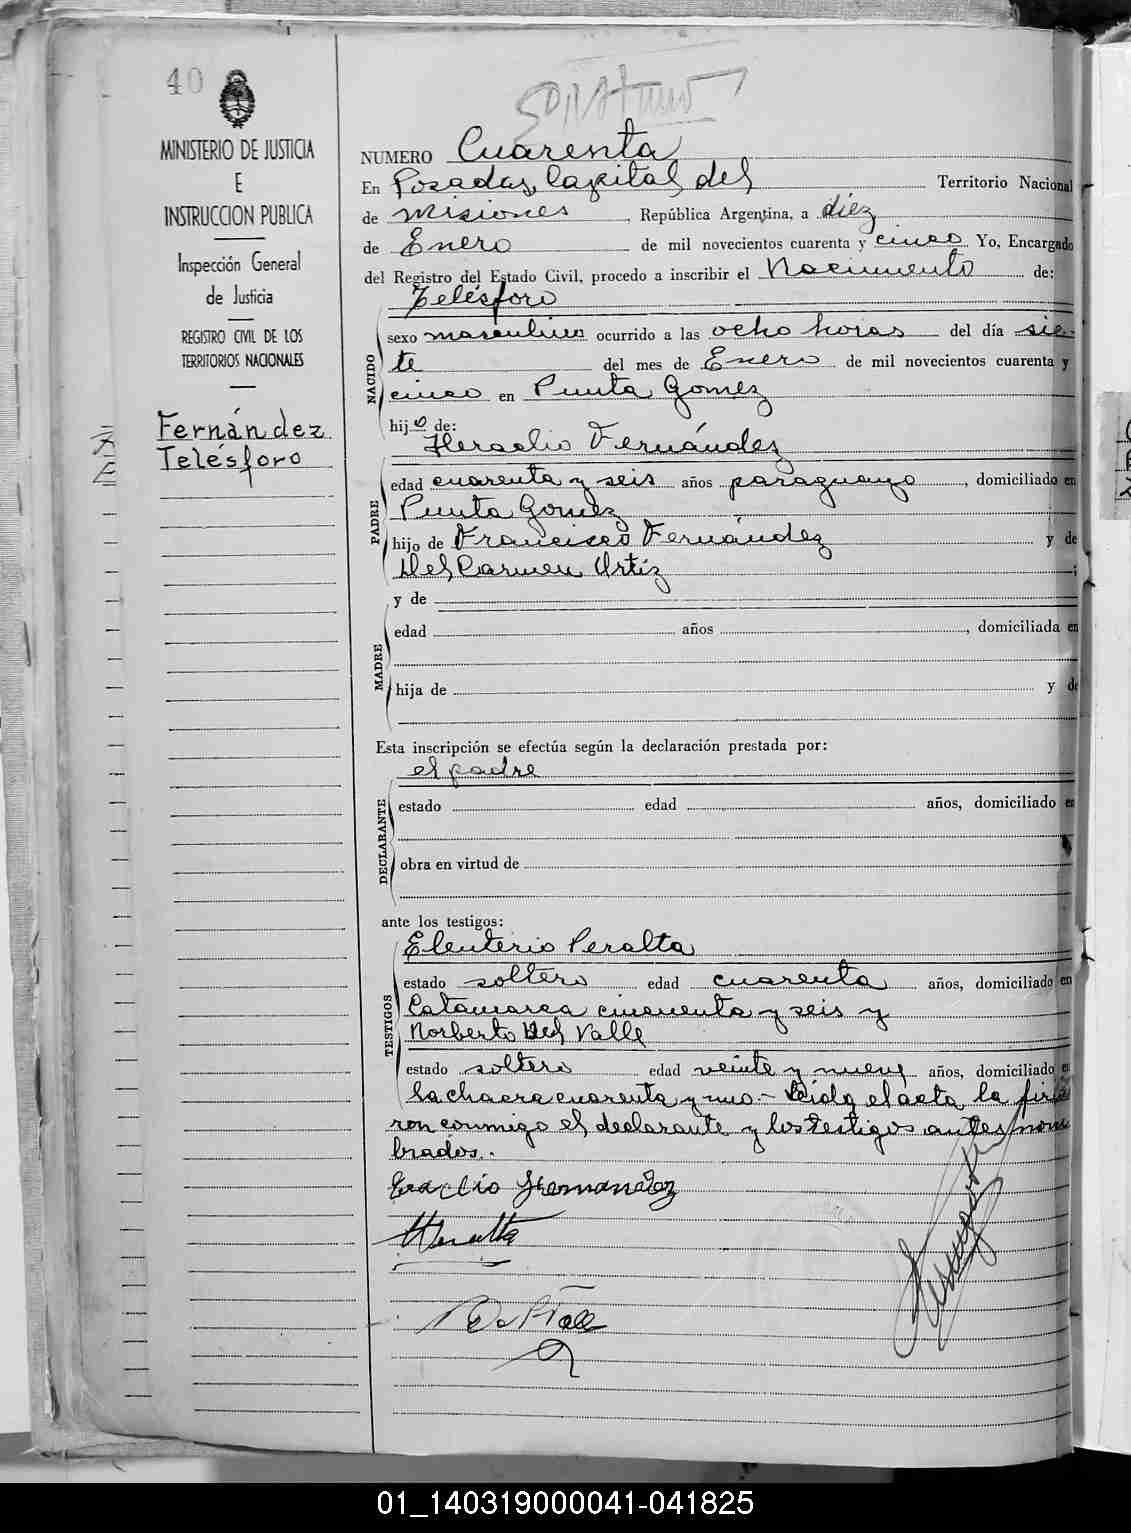 40
MINISTERIO DE JUSTICIA
E
INSTRUCCION PUBLICA
Inspección General
de Justicia
REGISTRO CIVIL DE LOS
TERRITORIOS NACIONALES
Fernández
Telésforo
NUMERO Cuarenta
En Posadas, Capital del Territorio Nacional
de Misiones, República Argentina, a diez
de Enero de mil novecientos cuarenta y cinco Yo, Encargado
del Registro del Estado Civil, procedo a inscribir el Nacimiento de:
Telésforo
NACIDO
sexo masculino ocurrido a las ocho horas del día sie-
te del mes de Enero de mil novecientos cuarenta y
cinco en Punta Gomez
hijo de:
Heraclio Fernández
PADRE
edad cuarenta y seis años paraguayo, domiciliado en
Punta Gomez
hijo de Francisco Fernández y de
Del Carmen Ortíz;
y de
MADRE
edad años, domiciliada en
hija de y de
Esta inscripción se efectúa según la declaración prestada por:
el padre
DECLARANTE
estado edad años, domiciliado en
obra en virtud de
ante los testigos:
Eleuterio Peralta
TESTIGOS
estado soltero edad cuarenta años, domiciliado en
Catamarca cincuenta y seis y
Norberto Del Valle
estado soltero edad veinte y nueve años, domiciliado en
la chacra cuarenta y uno.- Leida el acta la firma
ron conmigo el declarante y los testigos antes nom
brados.
Eraclio Fernandez
Peralta
01_140319000041-041825